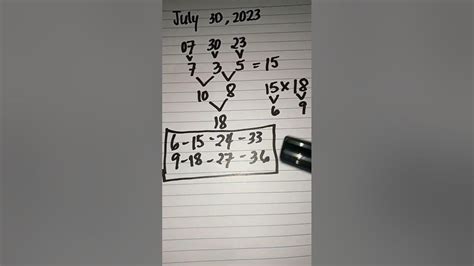 July 30, 2023
07 30 23
7 3 5 = 15
15 x 18
10 8
6 9
18
6-15-24-33
9-18-27-36